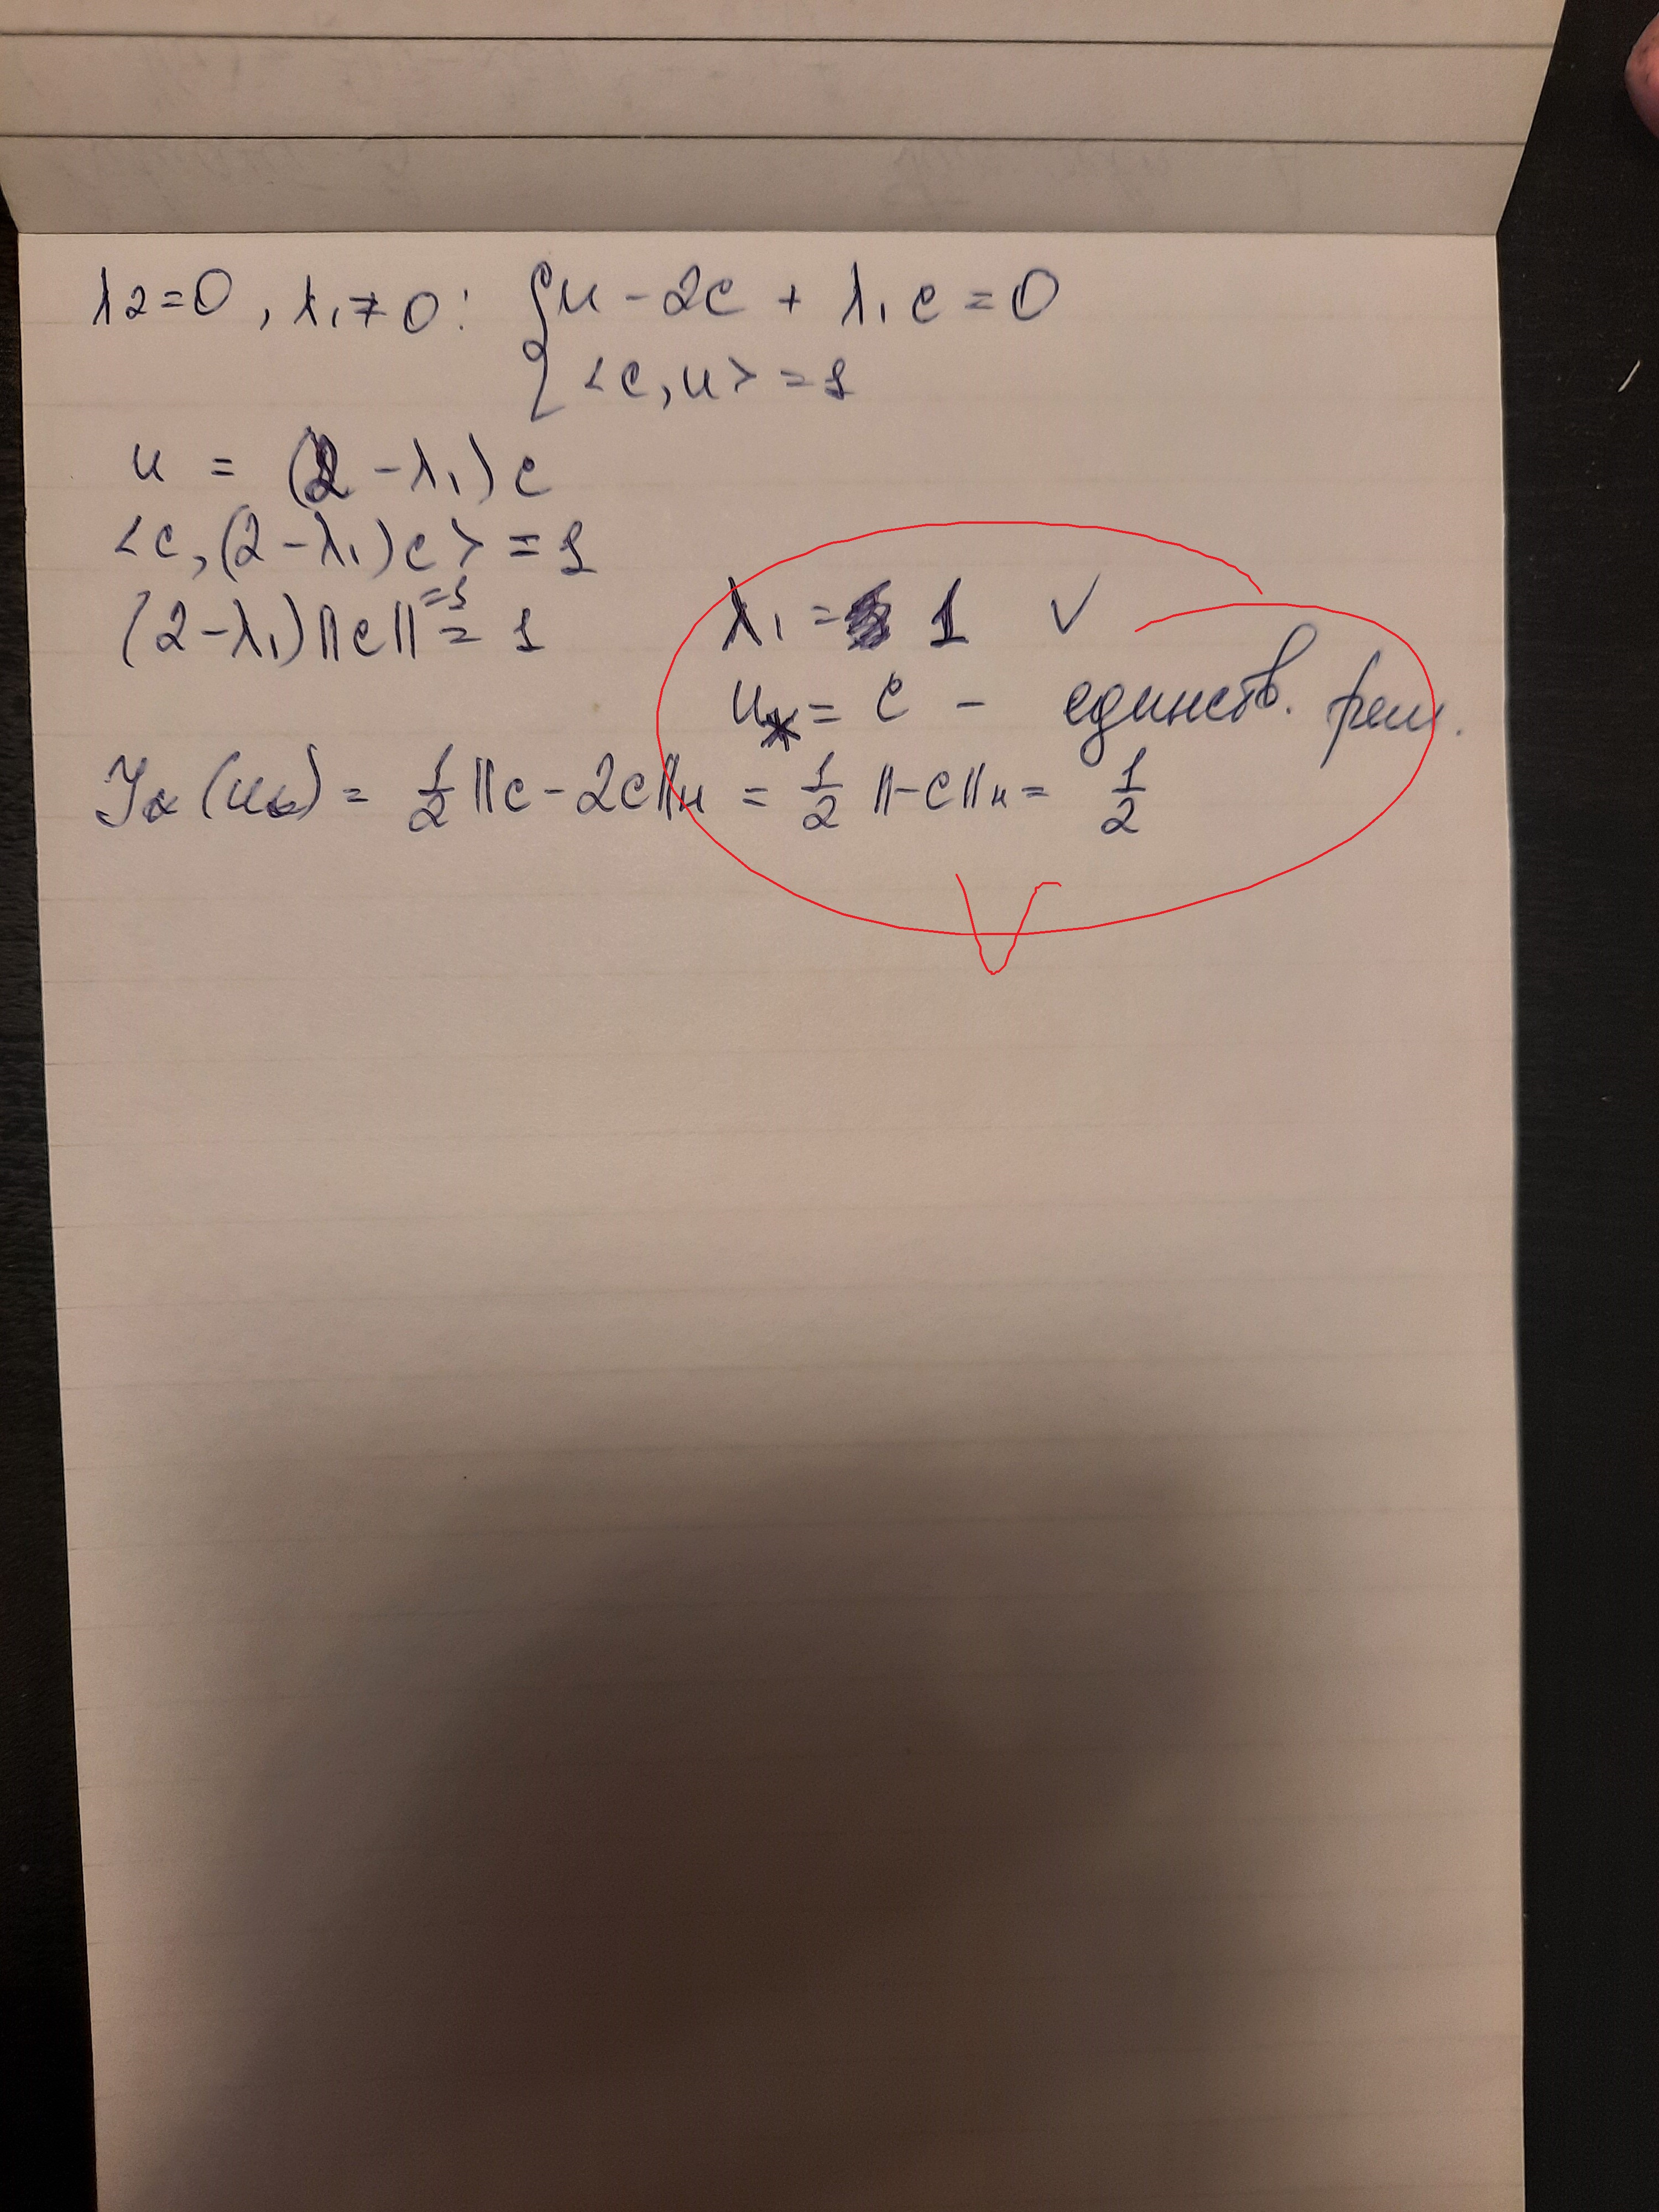 λ2=0, λ₁≠0: { u - 2c + λ₁c = 0
<c, u> = 1
u = (2 - λ₁)c
<c, (2-λ₁)c> = 1
(2-λ₁)||c||⁼¹ = 1
λ₁ = 1 ✓
u* = c - единств. реш.
J* (u*) = 1/2 ||c - 2c||н = 1/2 ||-c||н = 1/2